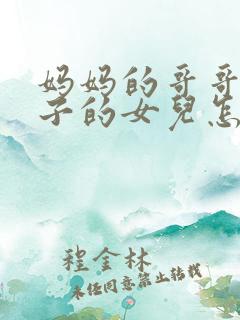 妈妈的哥哥
子的女兒怎
程金林
未经同意禁止转载